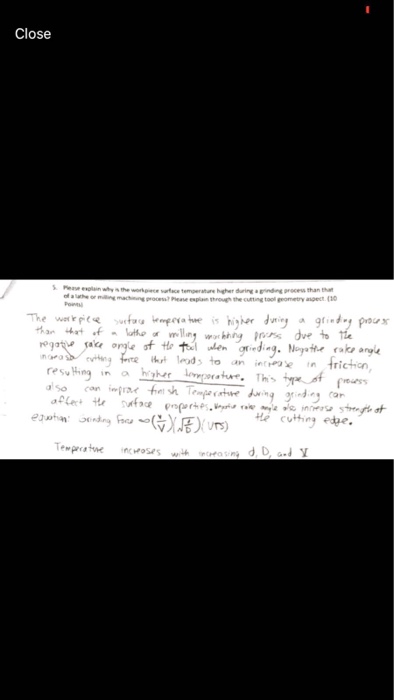 Close
5. Please explain why is the workpiece surface temperature higher during a grinding process than that
of a lathe or milling machining process? Please explain through the cutting tool geometry aspect. (10
Points)
The workpiece surface temperature is higher during a grinding process
than that of a lathe or milling machining process due to the
negative rake angle of the tool when grinding. Negative rake angle
increase cutting force that leads to an increase in friction,
resulting in a higher temperature. This type of process
also can improve finish Temperature during grinding can
affect the surface properties. Negative rake angle also increase strength of
the cutting edge.
equation: Grinding force ∝ (v/V)(√d/D)(UTS)
Temperature increases with increasing d, D, and V